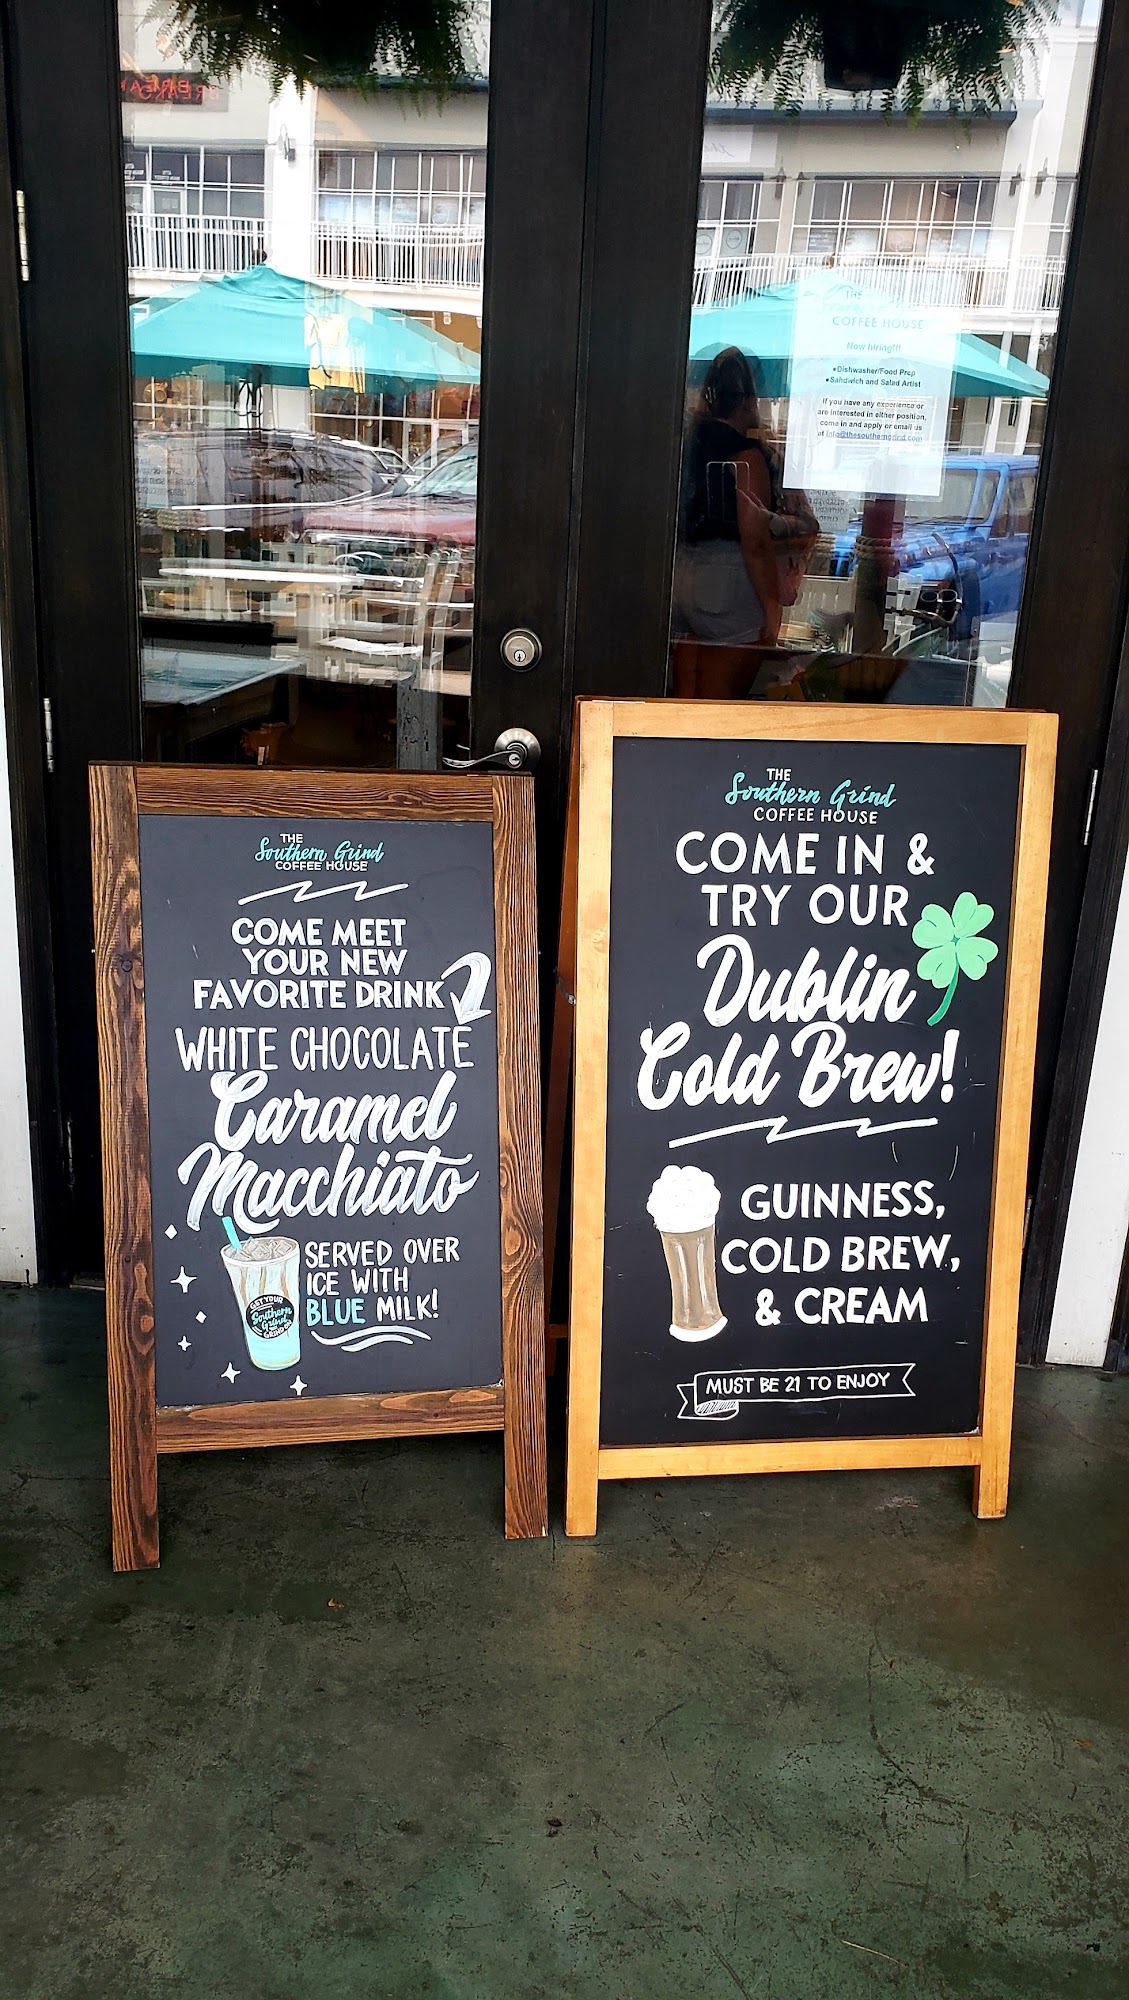 THE
COFFEE HOUSE
Now hiring!!!
•Dishwasher/Food Prep
•Sandwich and Salad Artist
If you have any experience or
are interested in either position,
come in and apply or email us
at info@thesoutherngrind.com
THE
Southern Grind
COFFEE HOUSE
COME MEET
YOUR NEW
FAVORITE DRINK
WHITE CHOCOLATE
Caramel
Macchiato
SERVED OVER
ICE WITH
BLUE MILK!
GET YOUR
Southern
Grind
GRIND ON
THE
Southern Grind
COFFEE HOUSE
COME IN &
TRY OUR
Dublin
Cold Brew!
GUINNESS,
COLD BREW,
& CREAM
MUST BE 21 TO ENJOY